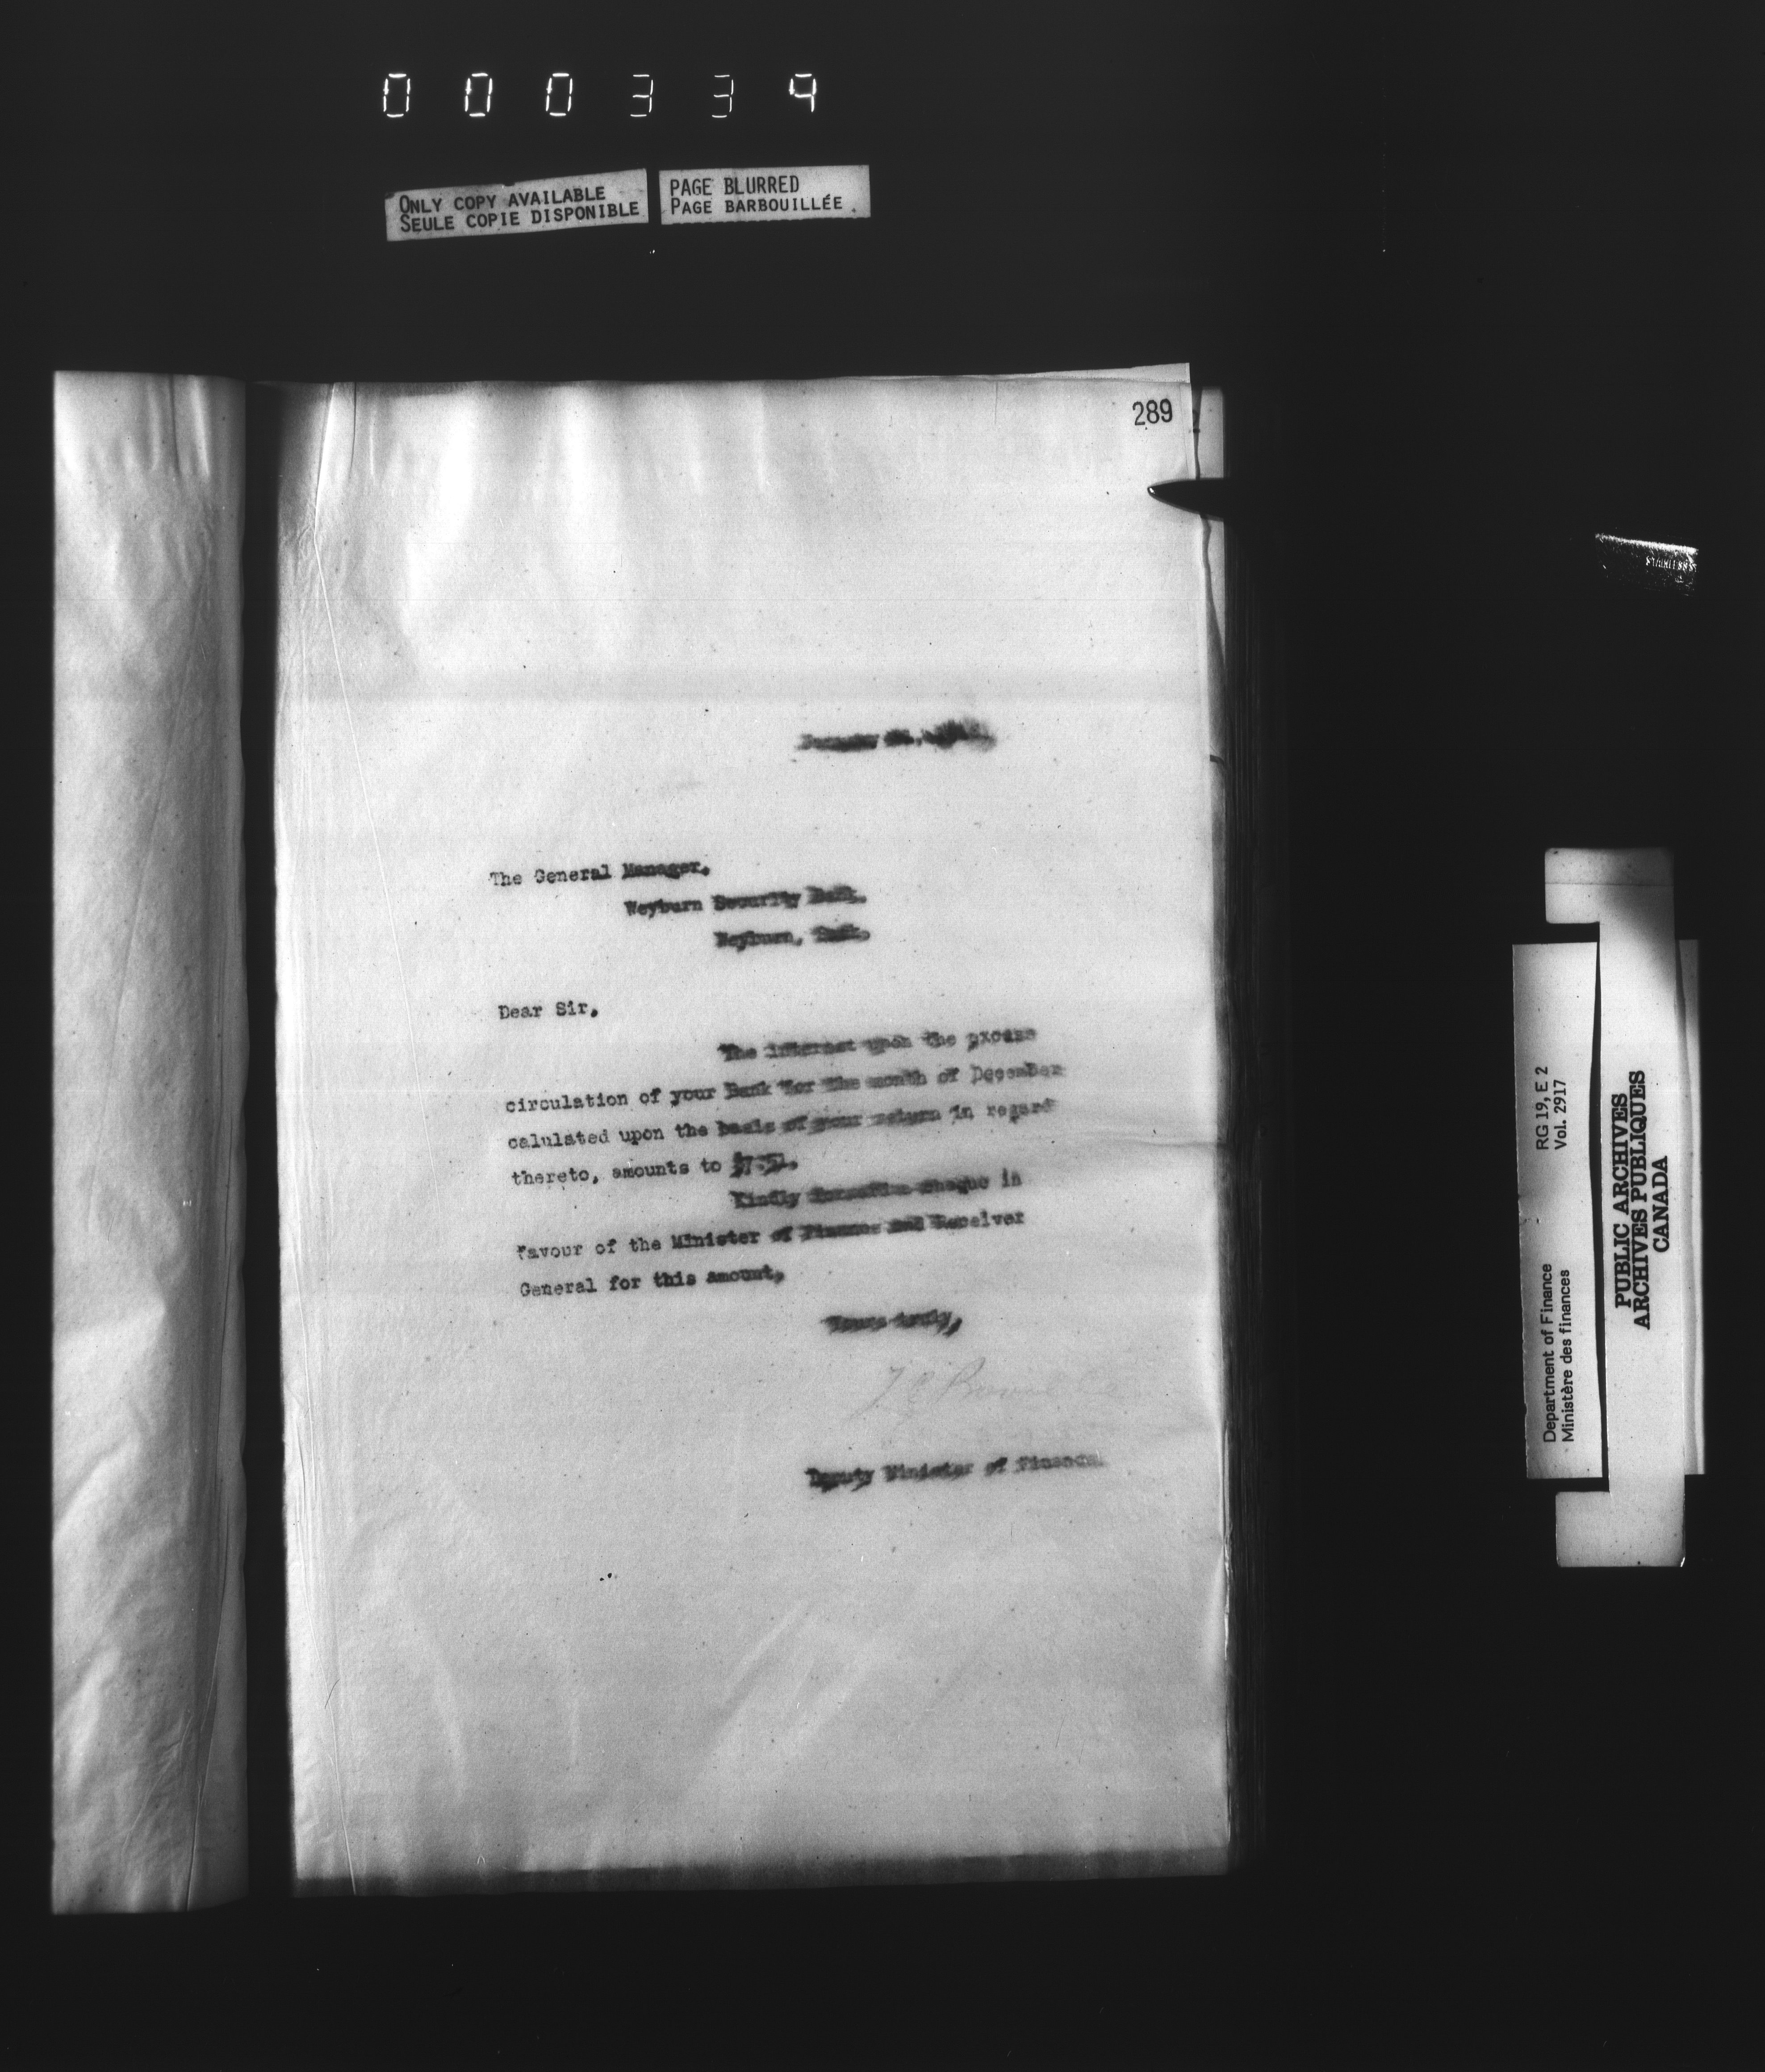 000334
ONLY COPY AVAILABLE
SEULE COPIE DISPONIBLE
PAGE BLURRED
PAGE BARBOUILLÉE
289
The General Manager,
Weyburn Security Bank,
Weyburn, Sask.
Dear Sir,
The interest upon the excess
circulation of your Bank for the month of December
calulated upon the basis of your return in regard
thereto, amounts to
Kindly forward a cheque in
favour of the Minister of Finance and Receiver
General for this amount,
Yours truly,
Deputy Minister of Finance.
RG 19, E 2
Vol. 2917
Department of Finance
Ministère des finances
PUBLIC ARCHIVES
ARCHIVES PUBLIQUES
CANADA